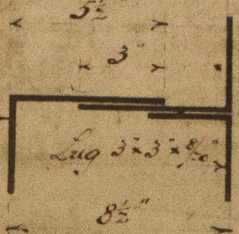 5½"
3"
Lug 3" × 3" × 8/10"
8½"